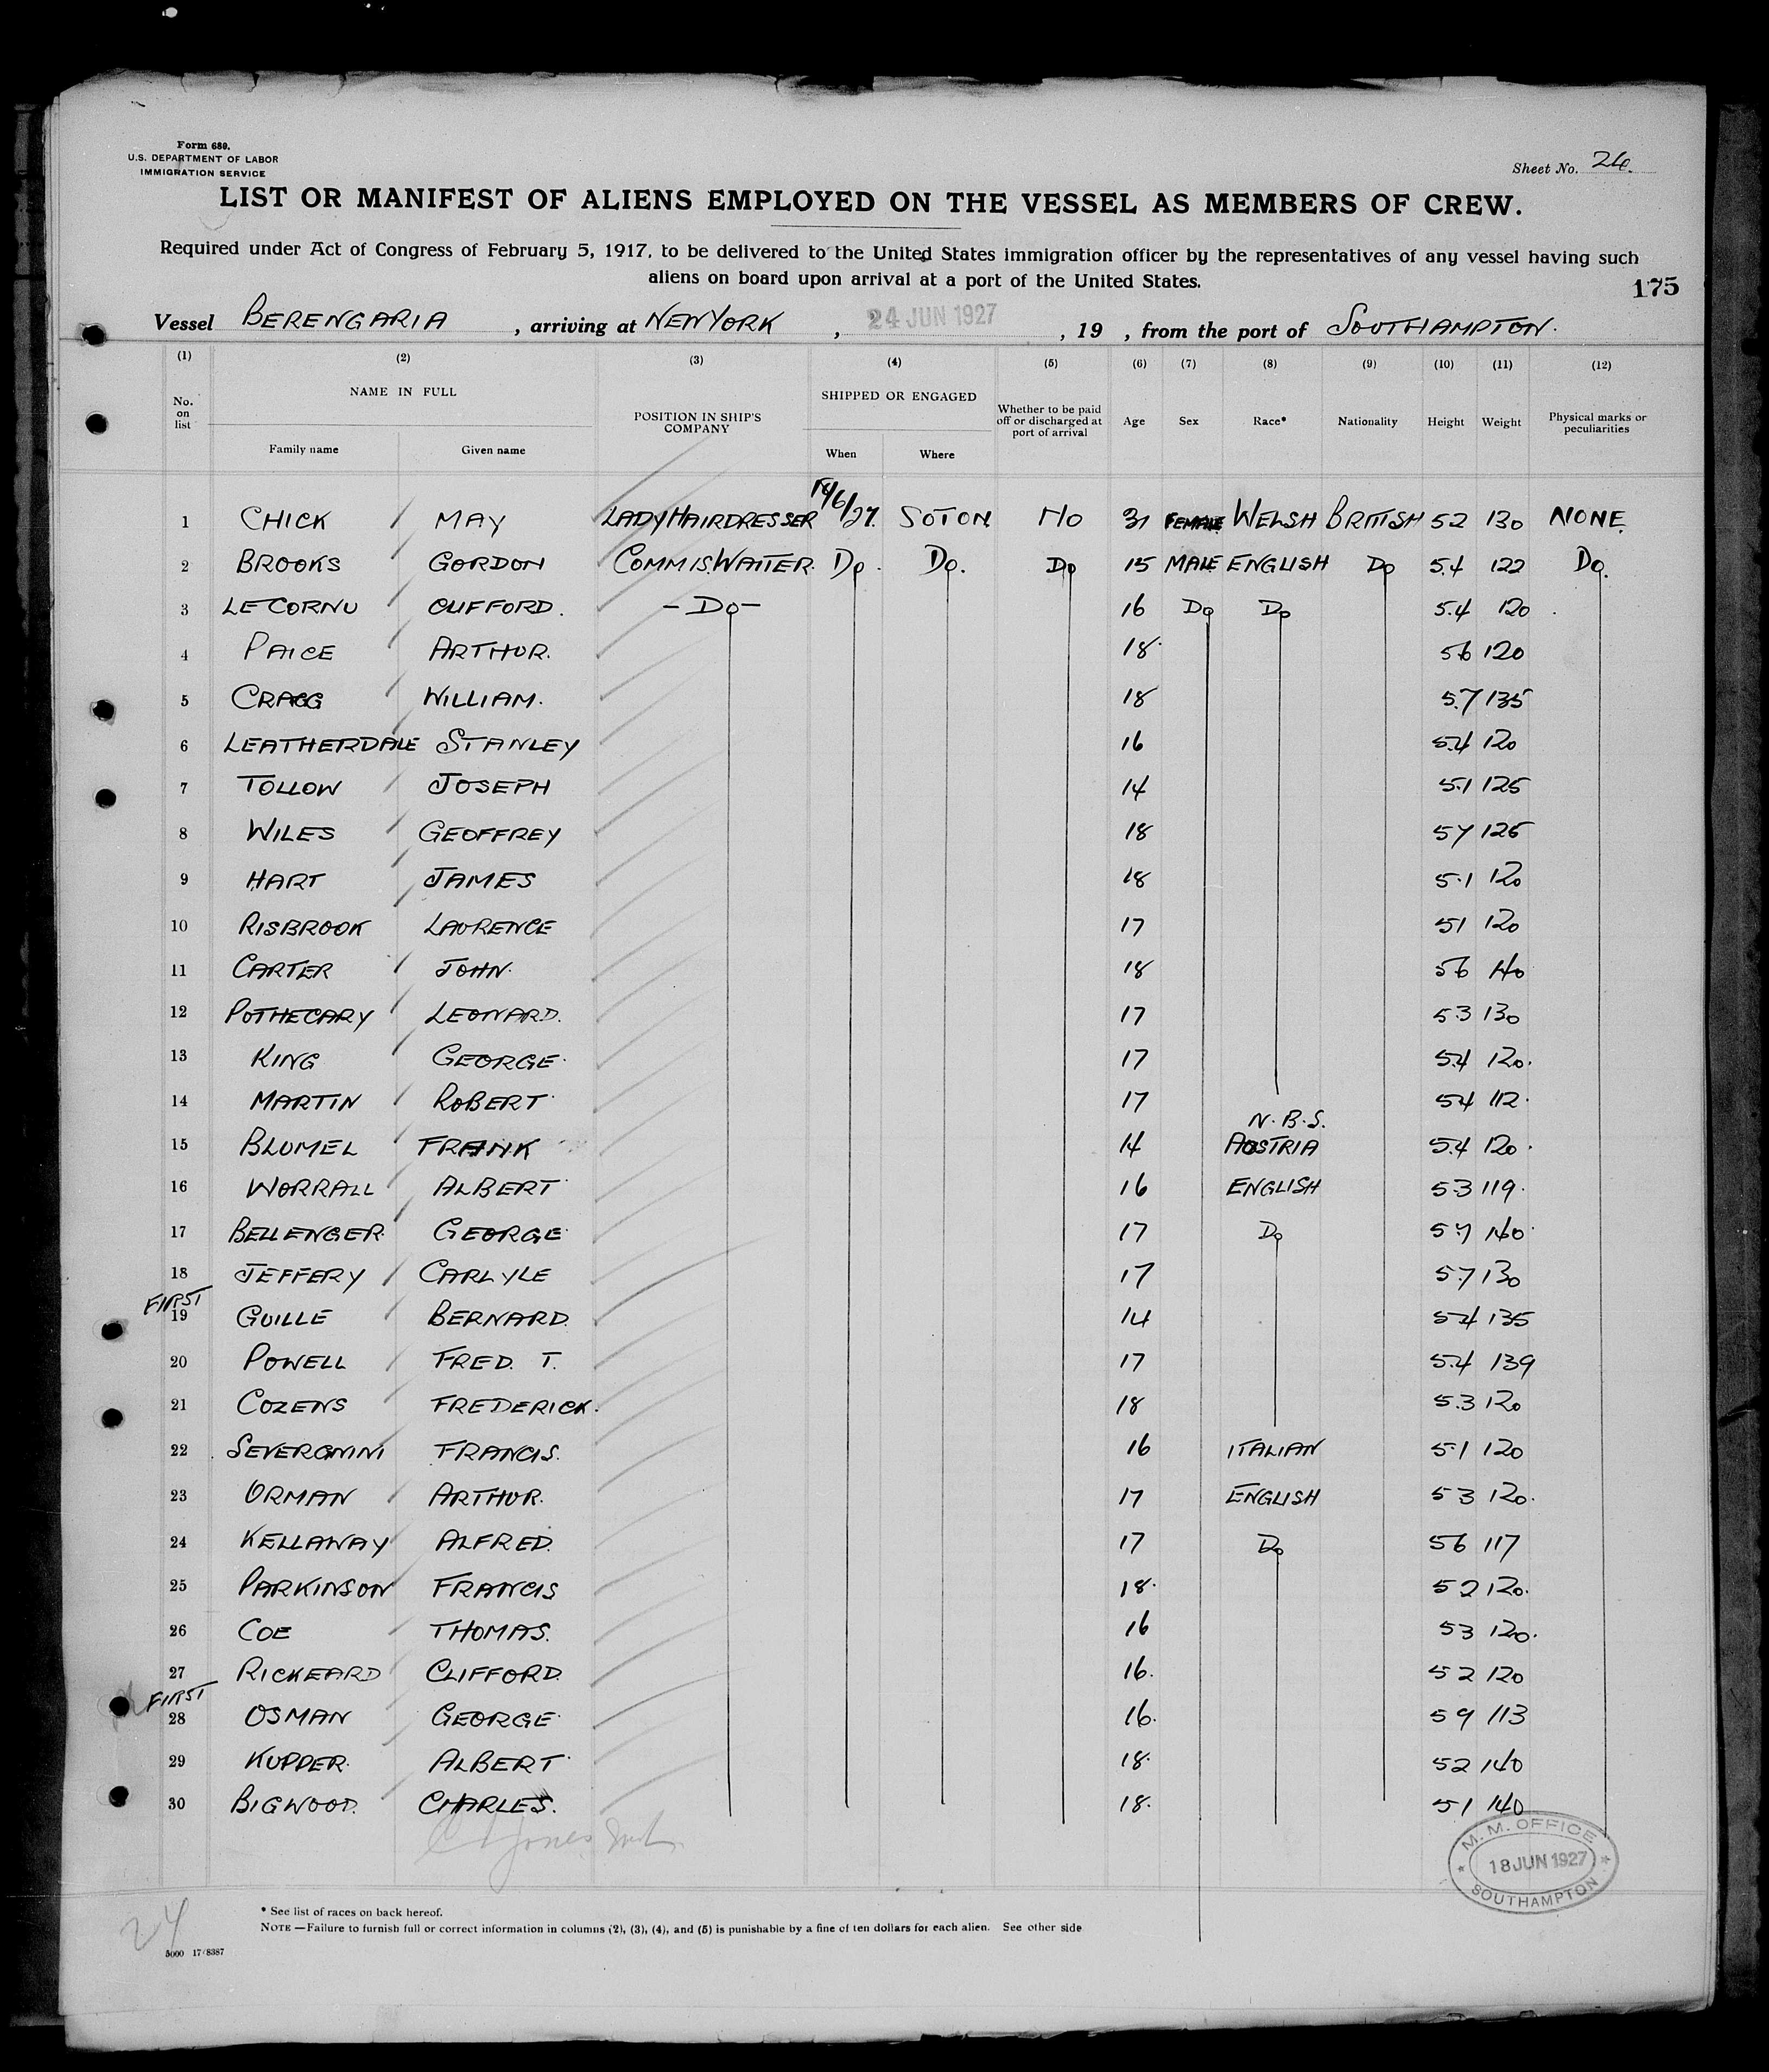 Form 680.
U.S. DEPARTMENT OF LABOR
IMMIGRATION SERVICE
Sheet No. 24.
LIST OR MANIFEST OF ALIENS EMPLOYED ON THE VESSEL AS MEMBERS OF CREW.
Required under Act of Congress of February 5, 1917, to be delivered to the United States immigration officer by the representatives of any vessel having such
aliens on board upon arrival at a port of the United States.
175
Vessel BERENGARIA , arriving at NEW YORK , 24 JUN 1927 , 19 , from the port of SOUTHAMPTON.
(1) (2) (3) (4) (5) (6) (7) (8) (9) (10) (11) (12)
No. on list NAME IN FULL POSITION IN SHIP'S COMPANY SHIPPED OR ENGAGED Whether to be paid off or discharged at port of arrival Age Sex Race* Nationality Height Weight Physical marks or peculiarities
Family name Given name When Where
1 CHICK MAY LADY HAIRDRESSER /6/27. SOTON NO 31 FEMALE WELSH BRITISH 52 130 NONE.
2 BROOKS GORDON COMMIS.WAITER. Do. Do. Do 15 MALE ENGLISH Do 5.4 122 Do.
3 LE CORNU CLIFFORD. -Do- 16 Do Do 5.4 120
4 PAICE ARTHUR. 18. 5.6 120
5 CRAGG WILLIAM. 18 5.7 135
6 LEATHERDALE STANLEY 16 5.4 120
7 TOLLOW JOSEPH 14 5.1 125
8 WILES GEOFFREY 18 57 125
9 HART JAMES 18 5.1 120
10 RISBROOK LAURENCE 17 51 120
11 CARTER JOHN. 18 56 140
12 POTHECARY LEONARD. 17 5.3 130
13 KING GEORGE. 17 5.4 120.
14 MARTIN ROBERT. 17 54 112.
N.B.S.
15 BLUMEL FRANK 14 AUSTRIA 5.4 120.
16 WORRALL ALBERT. 16 ENGLISH 5.3 119.
17 BELLENGER. GEORGE. 17 Do 5.7 140.
18 JEFFERY CARLYLE 17 5.7 130
FIRST
19 GUILLE BERNARD. 14 54 135
20 POWELL FRED. T. 17 5.4 139
21 COZENS FREDERICK. 18 5.3 120
22 SEVERGNINI FRANCIS. 16 ITALIAN 5.1 120
23 ORMAN ARTHUR. 17 ENGLISH 53 120.
24 KELLAWAY ALFRED. 17 Do 56 117
25 PARKINSON FRANCIS 18. 52 120.
26 COE THOMAS. 16 53 120.
27 RICKEARD CLIFFORD. 16. 52 120
FIRST
28 OSMAN GEORGE. 16. 59 113
29 KUPPER. ALBERT. 18. 52 140
30 BIGWOOD. CHARLES. 18. 51 140
Jones
M. M. OFFICE
18 JUN 1927
SOUTHAMPTON
24
* See list of races on back hereof.
NOTE—Failure to furnish full or correct information in columns (2), (3), (4), and (5) is punishable by a fine of ten dollars for each alien. See other side
5000 17/8387